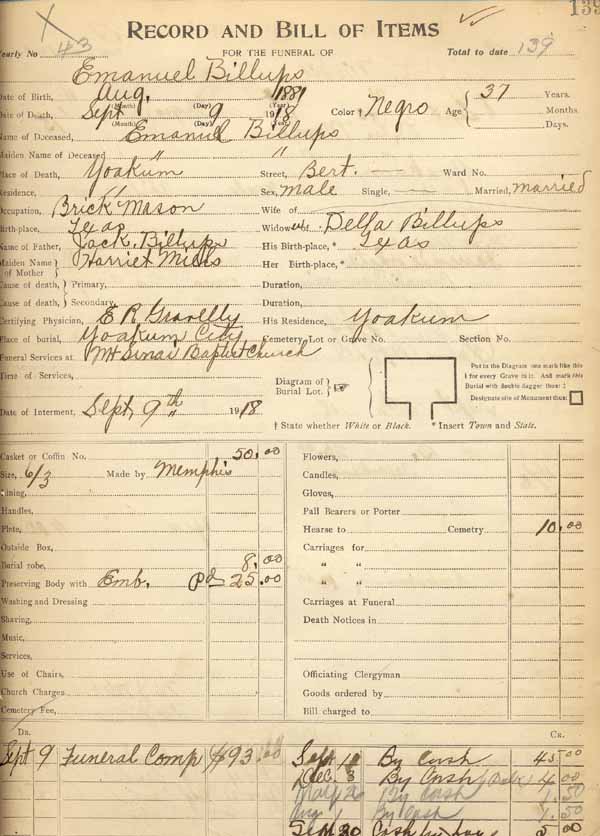 139
RECORD AND BILL OF ITEMS
Yearly No 43 FOR THE FUNERAL OF Total to date 139
Emanuel Billups
Date of Birth, Aug. 1881
(Month) (Day) (Year)
Date of Death, Sept 9 1918 Color † Negro Age 37 Years.
(Month) (Day) (Year) Months.
Name of Deceased, Emanuel Billups Days.
Maiden Name of Deceased " "
Place of Death, Yoakum Street, Bert. Ward No.
Residence, " Sex, Male Single, Married, married
Occupation, Brick Mason Wife of
Birth-place, Texas Widow Della Billups
Name of Father, Jack. Billups His Birth-place, * Texas
Maiden Name of Mother Harriet Mills Her Birth-place, *
Cause of death, Primary, Duration,
Cause of death, Secondary, Duration,
Certifying Physician, E R Gravelly His Residence, Yoakum
Place of burial, Yoakum City Cemetery Lot or Grave No. Section No.
Funeral Services at Mt Sinai Baptist Church
Time of Services,
Diagram of Burial Lot.
Put in the Diagram one mark like this
I for every Grave in it. And mark this
Burial with double dagger thus: ‡
Designate site of Monument thus:
Date of Interment, Sept, 9th 1918
† State whether White or Black. * Insert Town and State.
Casket or Coffin No. 50.00 Flowers,
Size, 6/3 Made by Memphis Candles,
Lining, Gloves,
Handles, Pall Bearers or Porter
Plate, Hearse to Cemetry 10.00
Outside Box, Carriages for
Burial robe, 8.00 " "
Preserving Body with Emb. Pd 25.00 " "
Washing and Dressing Carriages at Funeral
Shaving, Death Notices in
Music,
Services,
Use of Chairs, Officiating Clergyman
Church Charges Goods ordered by
Cemetery Fee, Bill charged to
DR. CR.
Sept 9 Funeral Comp $93.00 Sept 11 By Cash 45.00
Dec. 3 By Cash 4.00
By Cash 1.50
By Cash 1.50
Sept 20 Cash 5.00